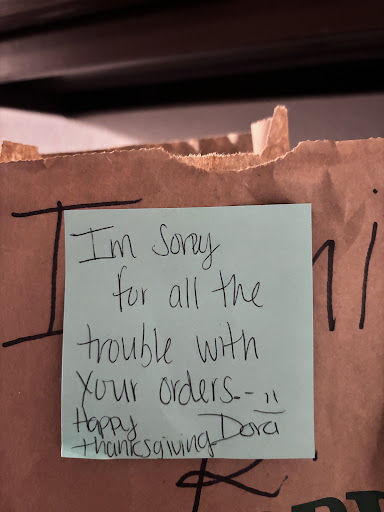 I'm Sorry
for all the
trouble with
your orders--
Happy
thanksgiving Dora